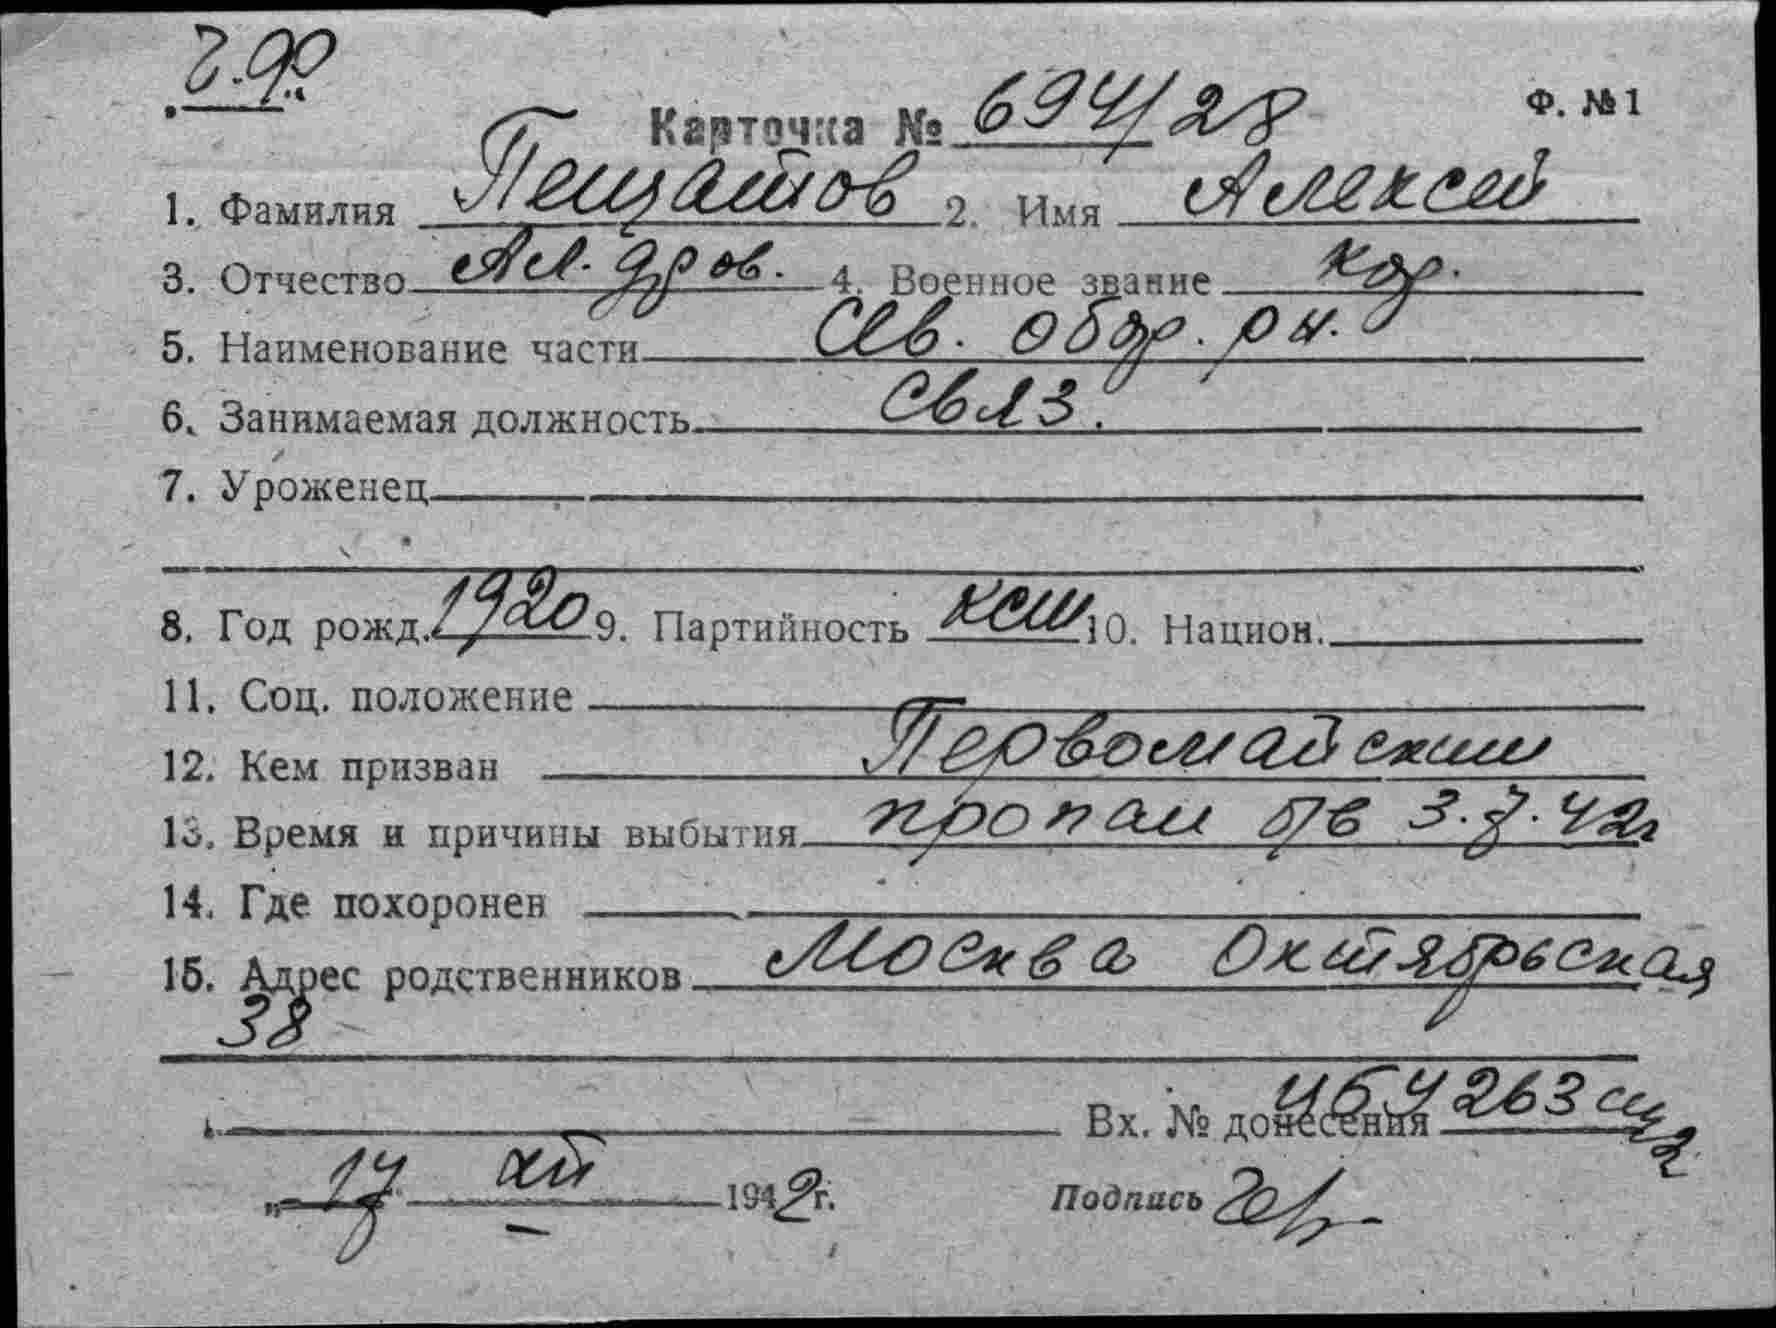 Ч.Ф.
Карточка № 694/28 Ф. №1
1. Фамилия Пещатов 2. Имя Алексей
3. Отчество Ал-дров. 4. Военное звание
5. Наименование части Сев. обор. рн.
6. Занимаемая должность связ.
7. Уроженец
8. Год рожд. 1920 9. Партийность ксм 10. Национ.
11. Соц. положение
12. Кем призван Первомайским
13. Время и причины выбытия пропал б/в 3.7.42г
14. Где похоронен
15. Адрес родственников Москва Октябрьская
38
Вх. № донесения
„17 XII 1942г. Подпись